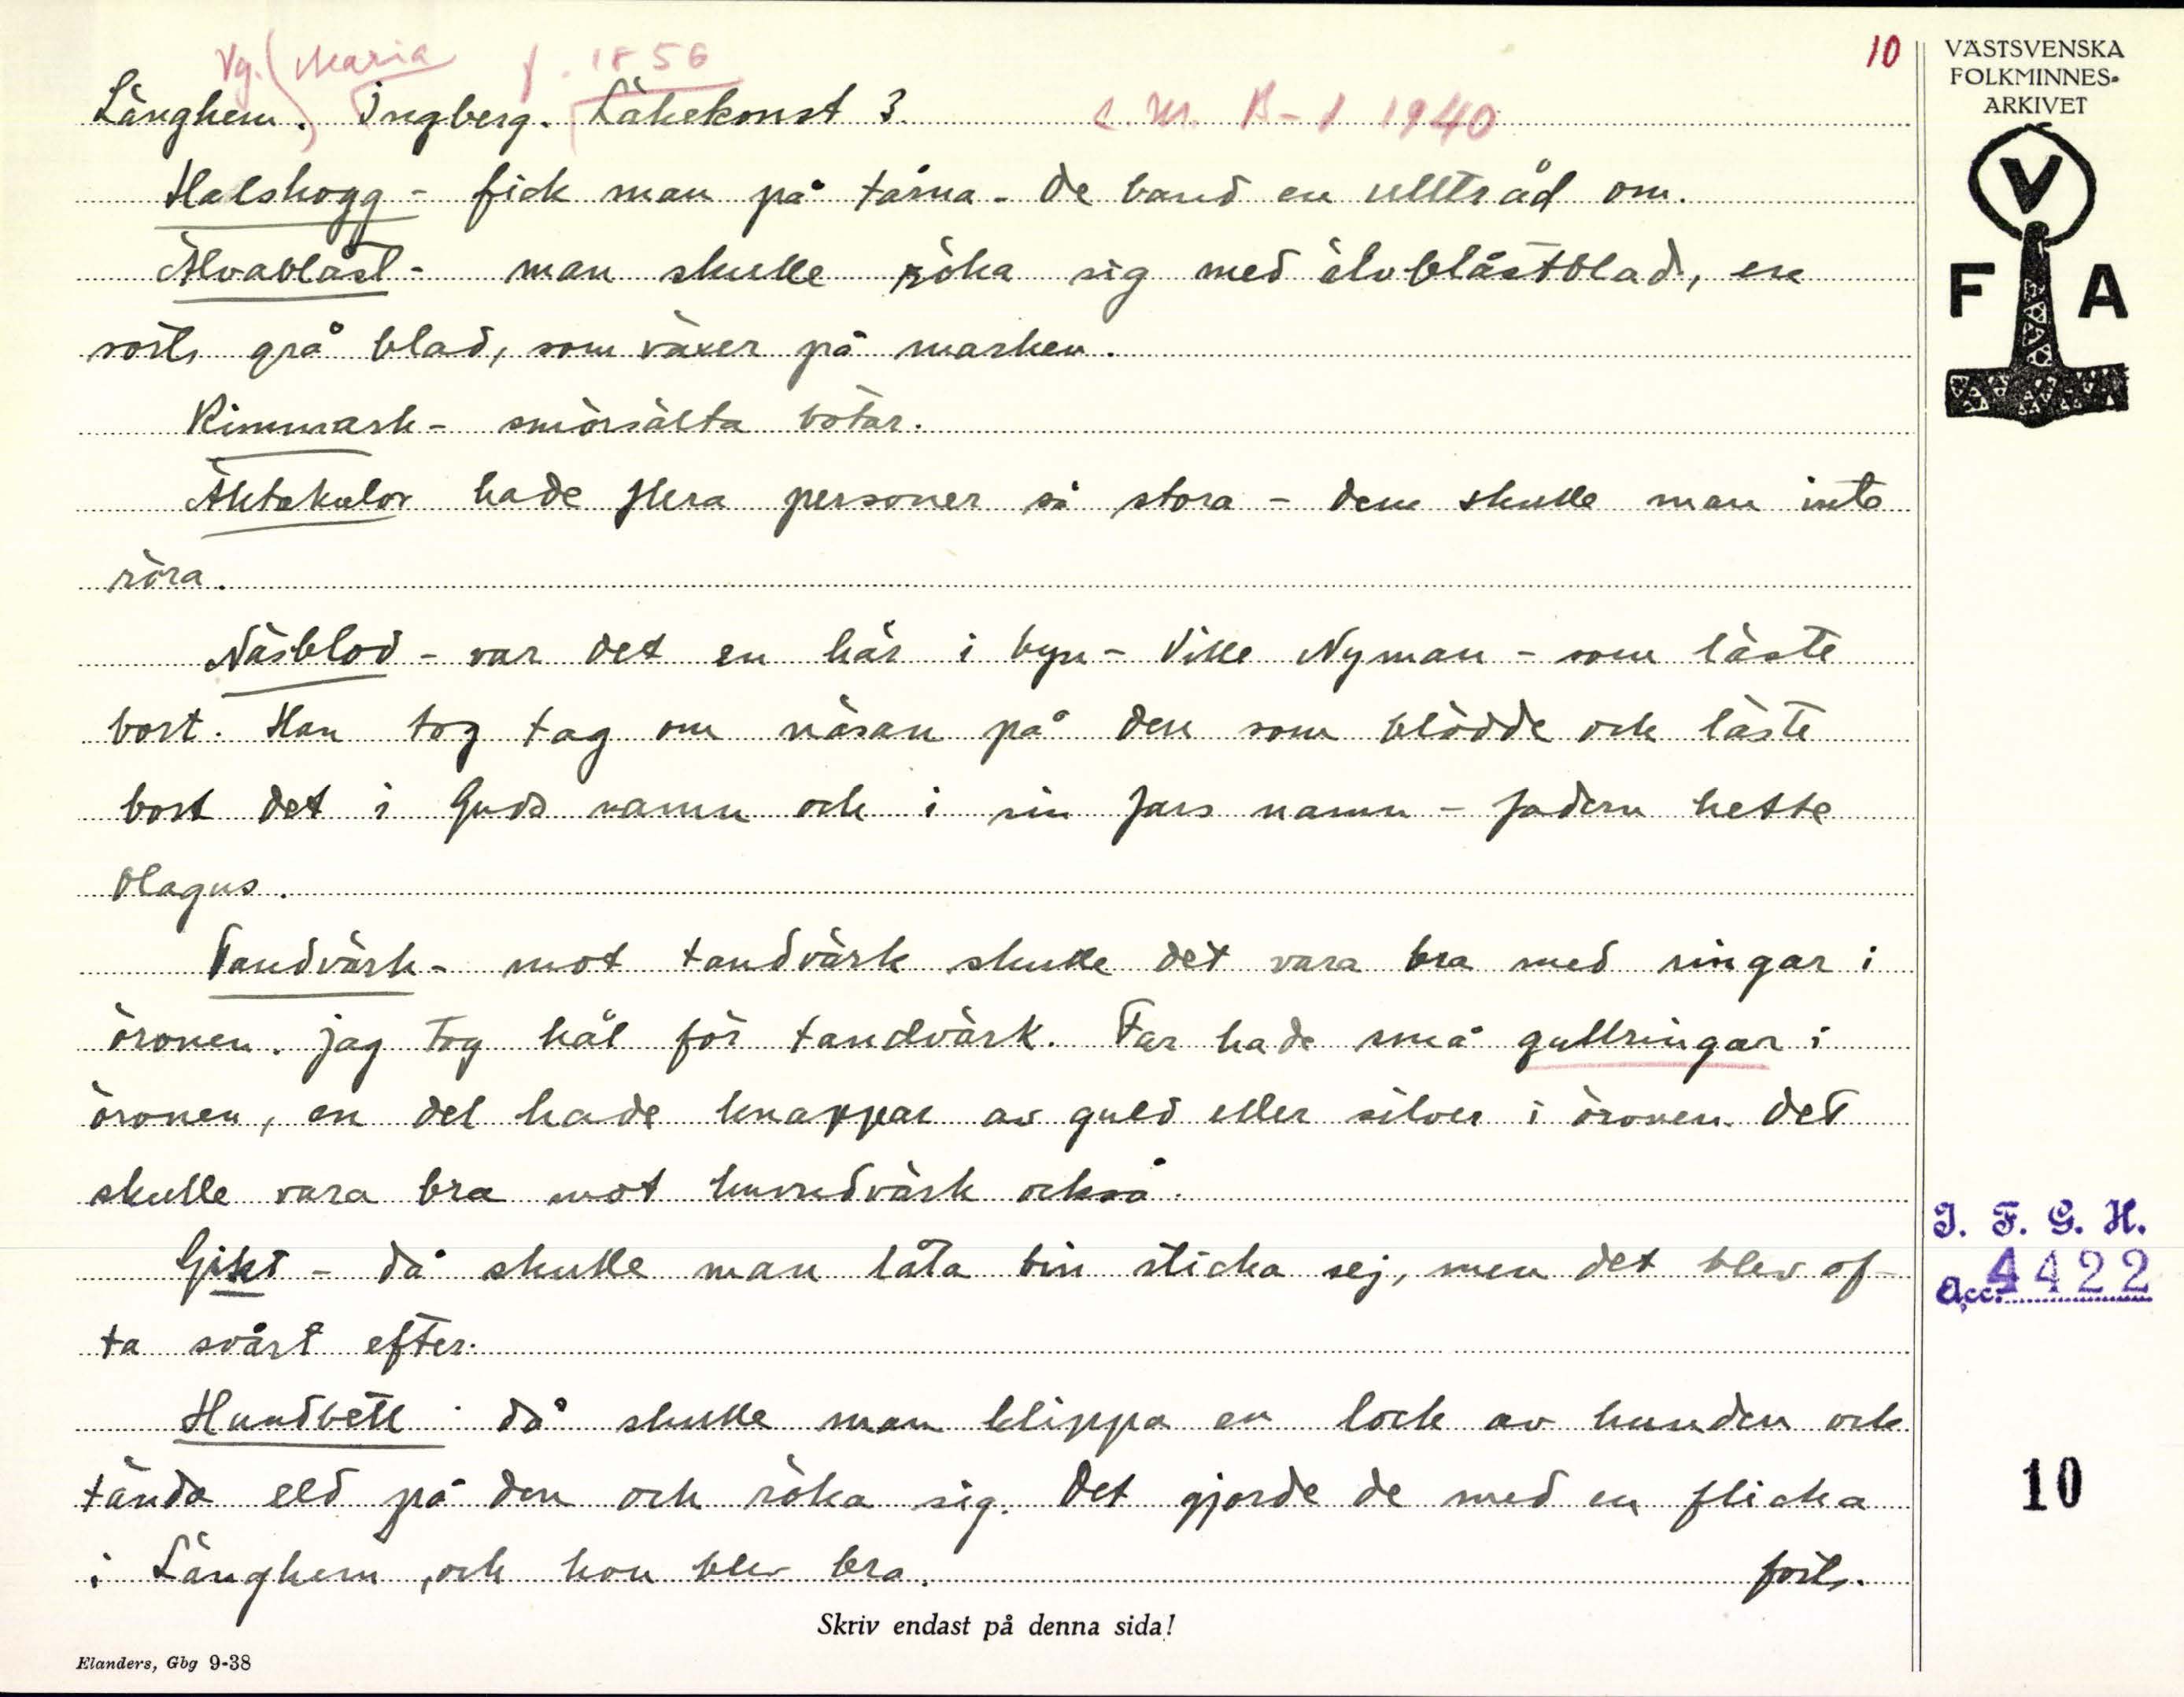 Vg. Maria f. 1856
10
Länghem. Ingberg. Läkekonst 3. 1940
Halshogg - fick man på tårna - de band en ulltråd om.
Älvablåst - man skulle röka sig med älvblåstblad, en
sorts grå blad, som växer på marken.
Rimmask - smörsälta botar.
Äktakulor hade flera personer så stora - dem skulle man inte
röra.
Näsblod - var det en här i byn - Ville Nyman - som läste
bort. Han tog tag om näsan på den som blödde och läste
bort det i Guds namn och i sin fars namn - fadern hette
Olagus.
Tandvärk - mot tandvärk skulle det vara bra med ringar i
öronen. jag tog hål för tandvärk. Far hade små gullringar i
öronen, en del hade knappar av guld eller silver i öronen. det
skulle vara bra mot huvudvärk också.
Gikt - då skulle man låta bin sticka sej, men det blev of-
ta svårt efter.
Hundbett - då skulle man klippa en lock av hunden och
tända eld på den och röka sig. Det gjorde de med en flicka
i Länghem, och hon blev bra. forts.
Skriv endast på denna sida!
Elanders, Gbg 9-38
VÄSTSVENSKA
FOLKMINNES-
ARKIVET
V
F A
I. F. G. H.
Acc. 4422
10